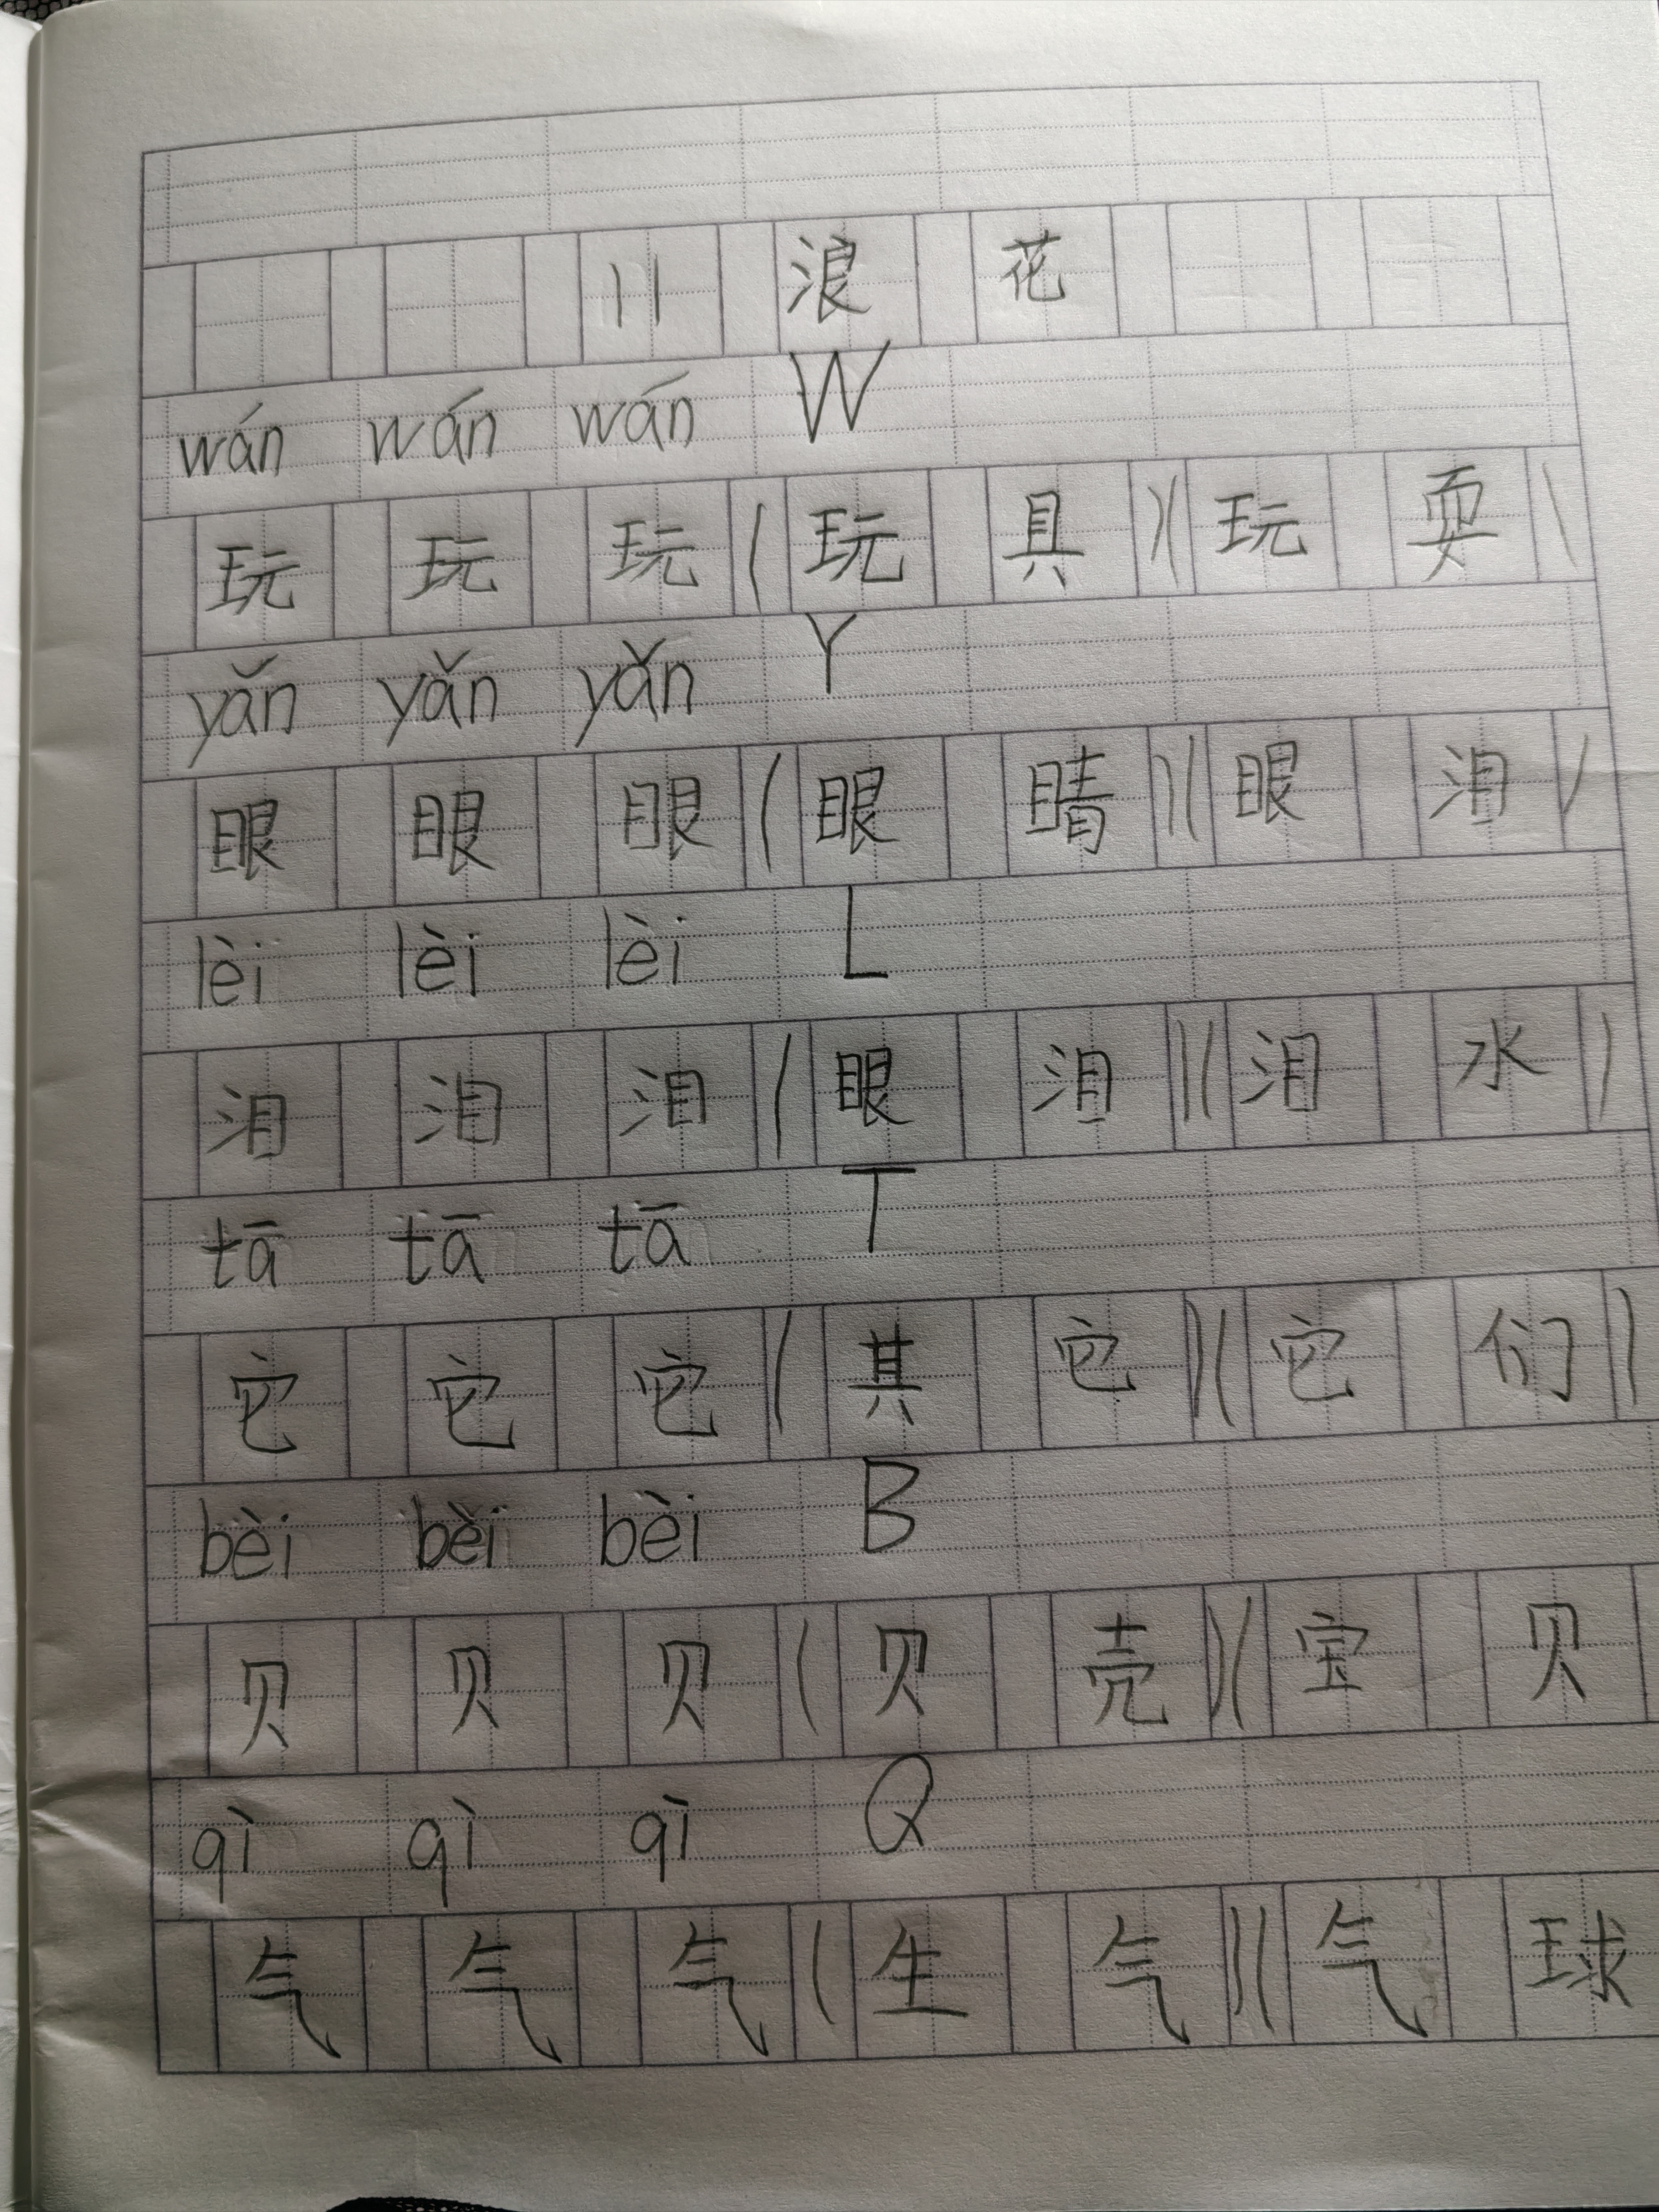 11 浪花
wán wán wán W
玩 玩 玩 (玩具)(玩耍)
yǎn yǎn yǎn Y
眼 眼 眼 (眼睛)(眼泪)
lèi lèi lèi L
泪 泪 泪 (眼泪)(泪水)
tā tā tā T
它 它 它 (其它)(它们)
bèi bèi bèi B
贝 贝 贝 (贝壳)(宝贝
qì qì qì Q
气 气 气 (生气)(气球